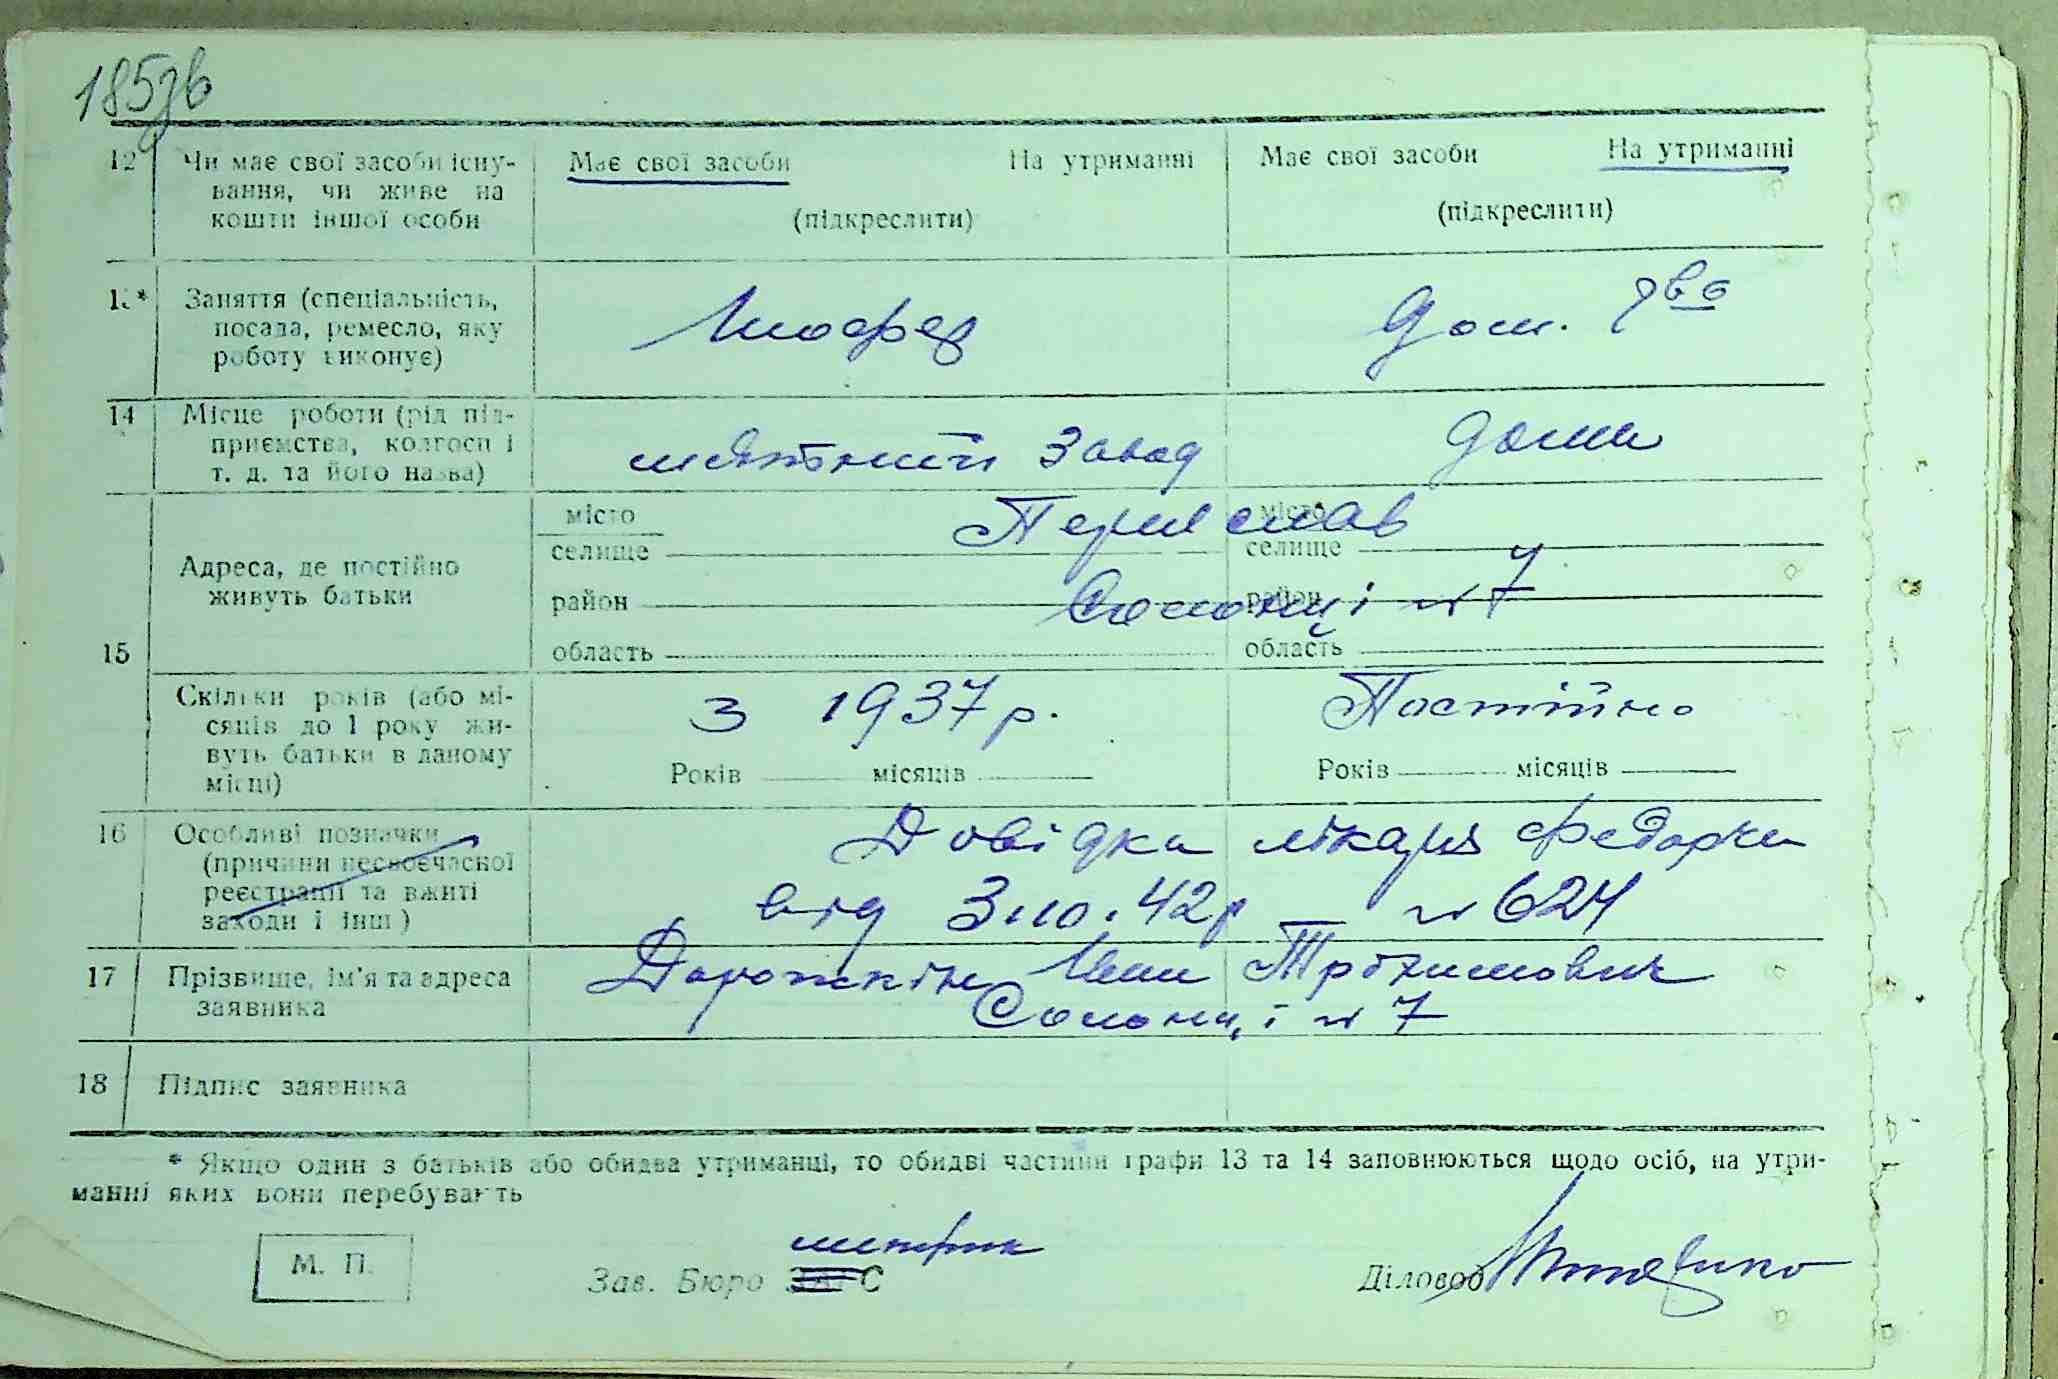 185зв
12 Чи має свої засоби існу- Має свої засоби На утриманні Має свої засоби На утриманні
вання, чи живе на
кошти іншої особи (підкреслити) (підкреслити)
13* Заняття (спеціальність,
посада, ремесло, яку Шофер Дом. г-во
роботу виконує)
14 Місце роботи (рід під-
приємства, колгосп і завод дома
т. д. та його назва)
місто місто
селище селище
Адреса, де постійно
живуть батьки район Солонці № 7 район
15 область область
Скільки років (або мі- з 1937 р. Постійно
сяців до 1 року жи-
вуть батьки в даному
місці) Років місяців Років місяців
16 Особливі позначки Довідка лікаря
(причини несвоєчасної
реєстрації та вжиті від 3.10.42р № 624
заходи і інш)
17 Прізвище, ім'я та адреса Дорожкін
заявника Солонці № 7
18 Підпис заявника
* Якщо один з батьків або обидва утриманці, то обидві частини графи 13 та 14 заповнюються щодо осіб, на утри-
манні яких вони перебувають
метрик
М. П. Зав. Бюро ЗАГС Діловод